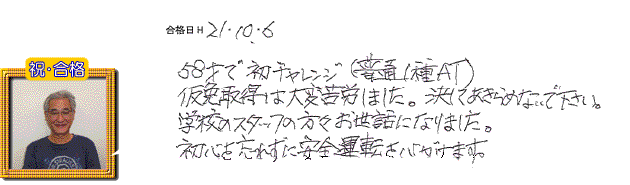 合格日 H 21.10.6
祝・合格
58才で初チャレンジ(普通1種AT)
仮免取得は大変苦労しました。決してあきらめないで下さい。
学校のスタッフの方々お世話になりました。
初心を忘れずに安全運転を心がけます。